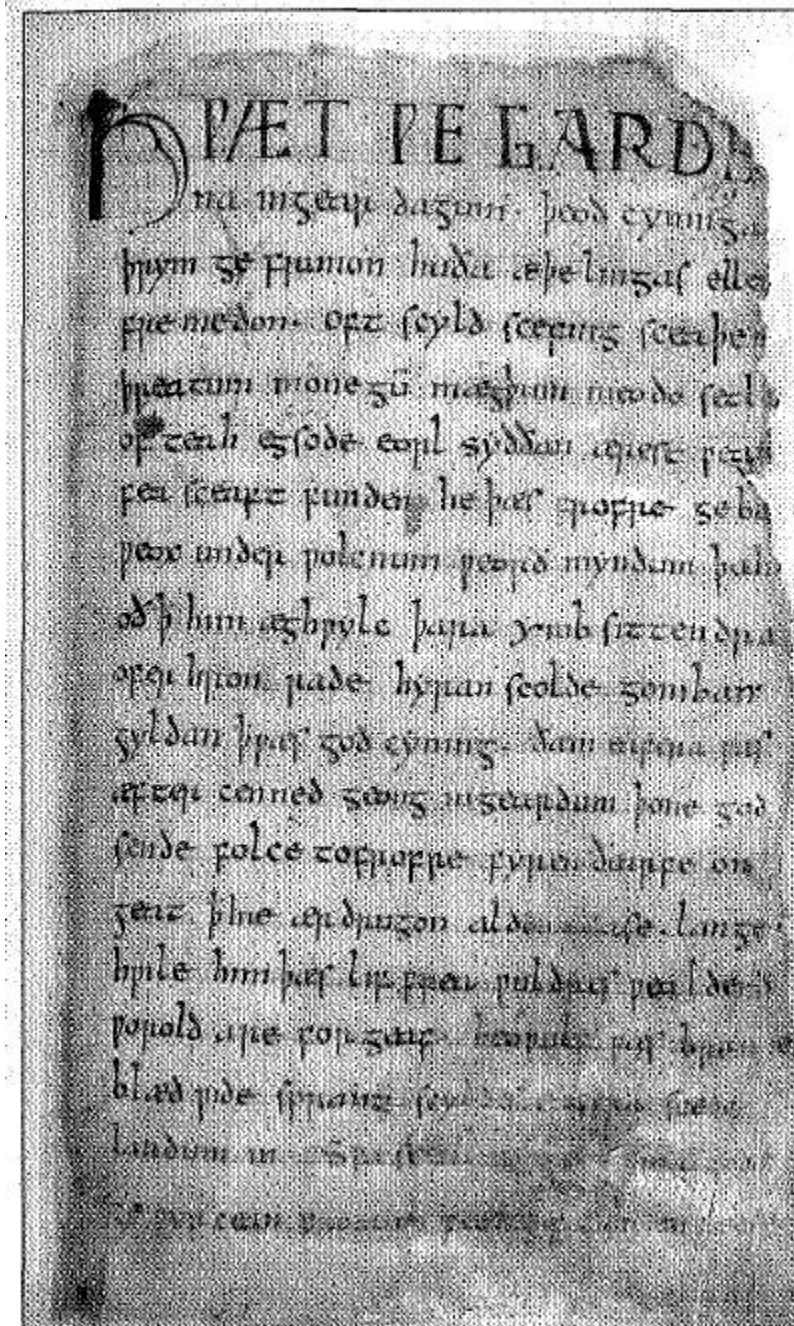 HǷÆT ǷE GARDE
na ingear dagum. þeod cyninga
þrym ge frunon huða æþelingas elle
fremedon. oft scyld scefing sceaþen
þreatum monegū mægþum meodo setla
of teah egsode eorl syððan ærest ƿear
fea sceaft funden he þæs frofre geba
ƿeox under ƿolcnum ƿeorð myndum þah
oð ꝥ him æghƿylc þara ymb sittendra
ofer hron rade hyran scolde gomban
gyldan ꝥ ƿæs god cyning. ðæm eafera ƿæs
æfter cenned geong ingeardum þone god
sende folce tofrofre fyren ðearfe on
geat ꝥ hie ær drugon aldor ase. lange
hƿile him þæs lif frea ƿuldres ƿealde
ƿorold are for geaf. beoƿulf ƿæs breme
blæd ƿide sprang scyldes eafera scede
landum in